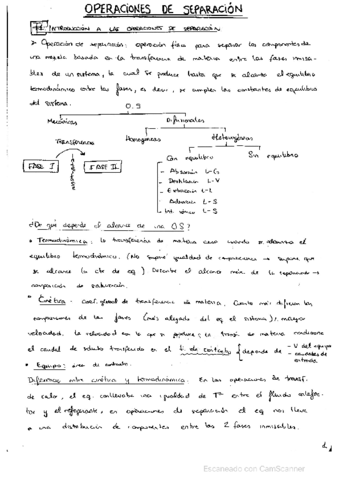 OPERACIONES DE SEPARACIÓN
INTRODUCCIÓN A LAS OPERACIONES DE SEPARACIÓN
> Operación de separación: operación física para separar los componentes de
una mezcla basada en la transferencia de materia entre las fases inmisci-
bles de un sistema, la cual se produce hasta que se alcanza el equilibrio
termodinámico entre las fases, es decir, se cumplen las constantes de equilibrio
del sistema.
O.S
Mecánicas
Difusionales
Transferencia
Homogéneas
Heterogéneas
FASE I
FASE II
Con equilibrio
Sin equilibrio
- Absorción L-G
- Destilación L-V
- Extracción L-L
- Adsorción L-S
- Int. iónico L-S
¿De qué depende el alcance de una O.S?
• Termodinámica: la transferencia de materia cesa cuando se alcanza el
equilibrio termodinámico. (No supone igualdad de composiciones → supone que
se alcance la cte de eq.) Describe el alcance máx. de la separación →
composición de saturación.
• Cinética: coef. global de transferencia de materia. Cuanto más difieran las
composiciones de las fases (más alejado del eq el sistema) mayor
velocidad. La velocidad con la que se produce la transf. de materia condiciona
el caudal de soluto transferido en el t. de contacto { depende de
- V del equipo
- caudales de entrada.
• Equipo: área de contacto.
Diferencia entre cinética y termodinámica. En las operaciones de transf.
de calor, el eq. conllevaba una igualdad de Tª entre el fluido calefac-
tor y el refrigerante, en operaciones de separación el eq nos lleva
a una distribución de componentes entre las 2 fases inmiscibles.
1
Escaneado con CamScanner